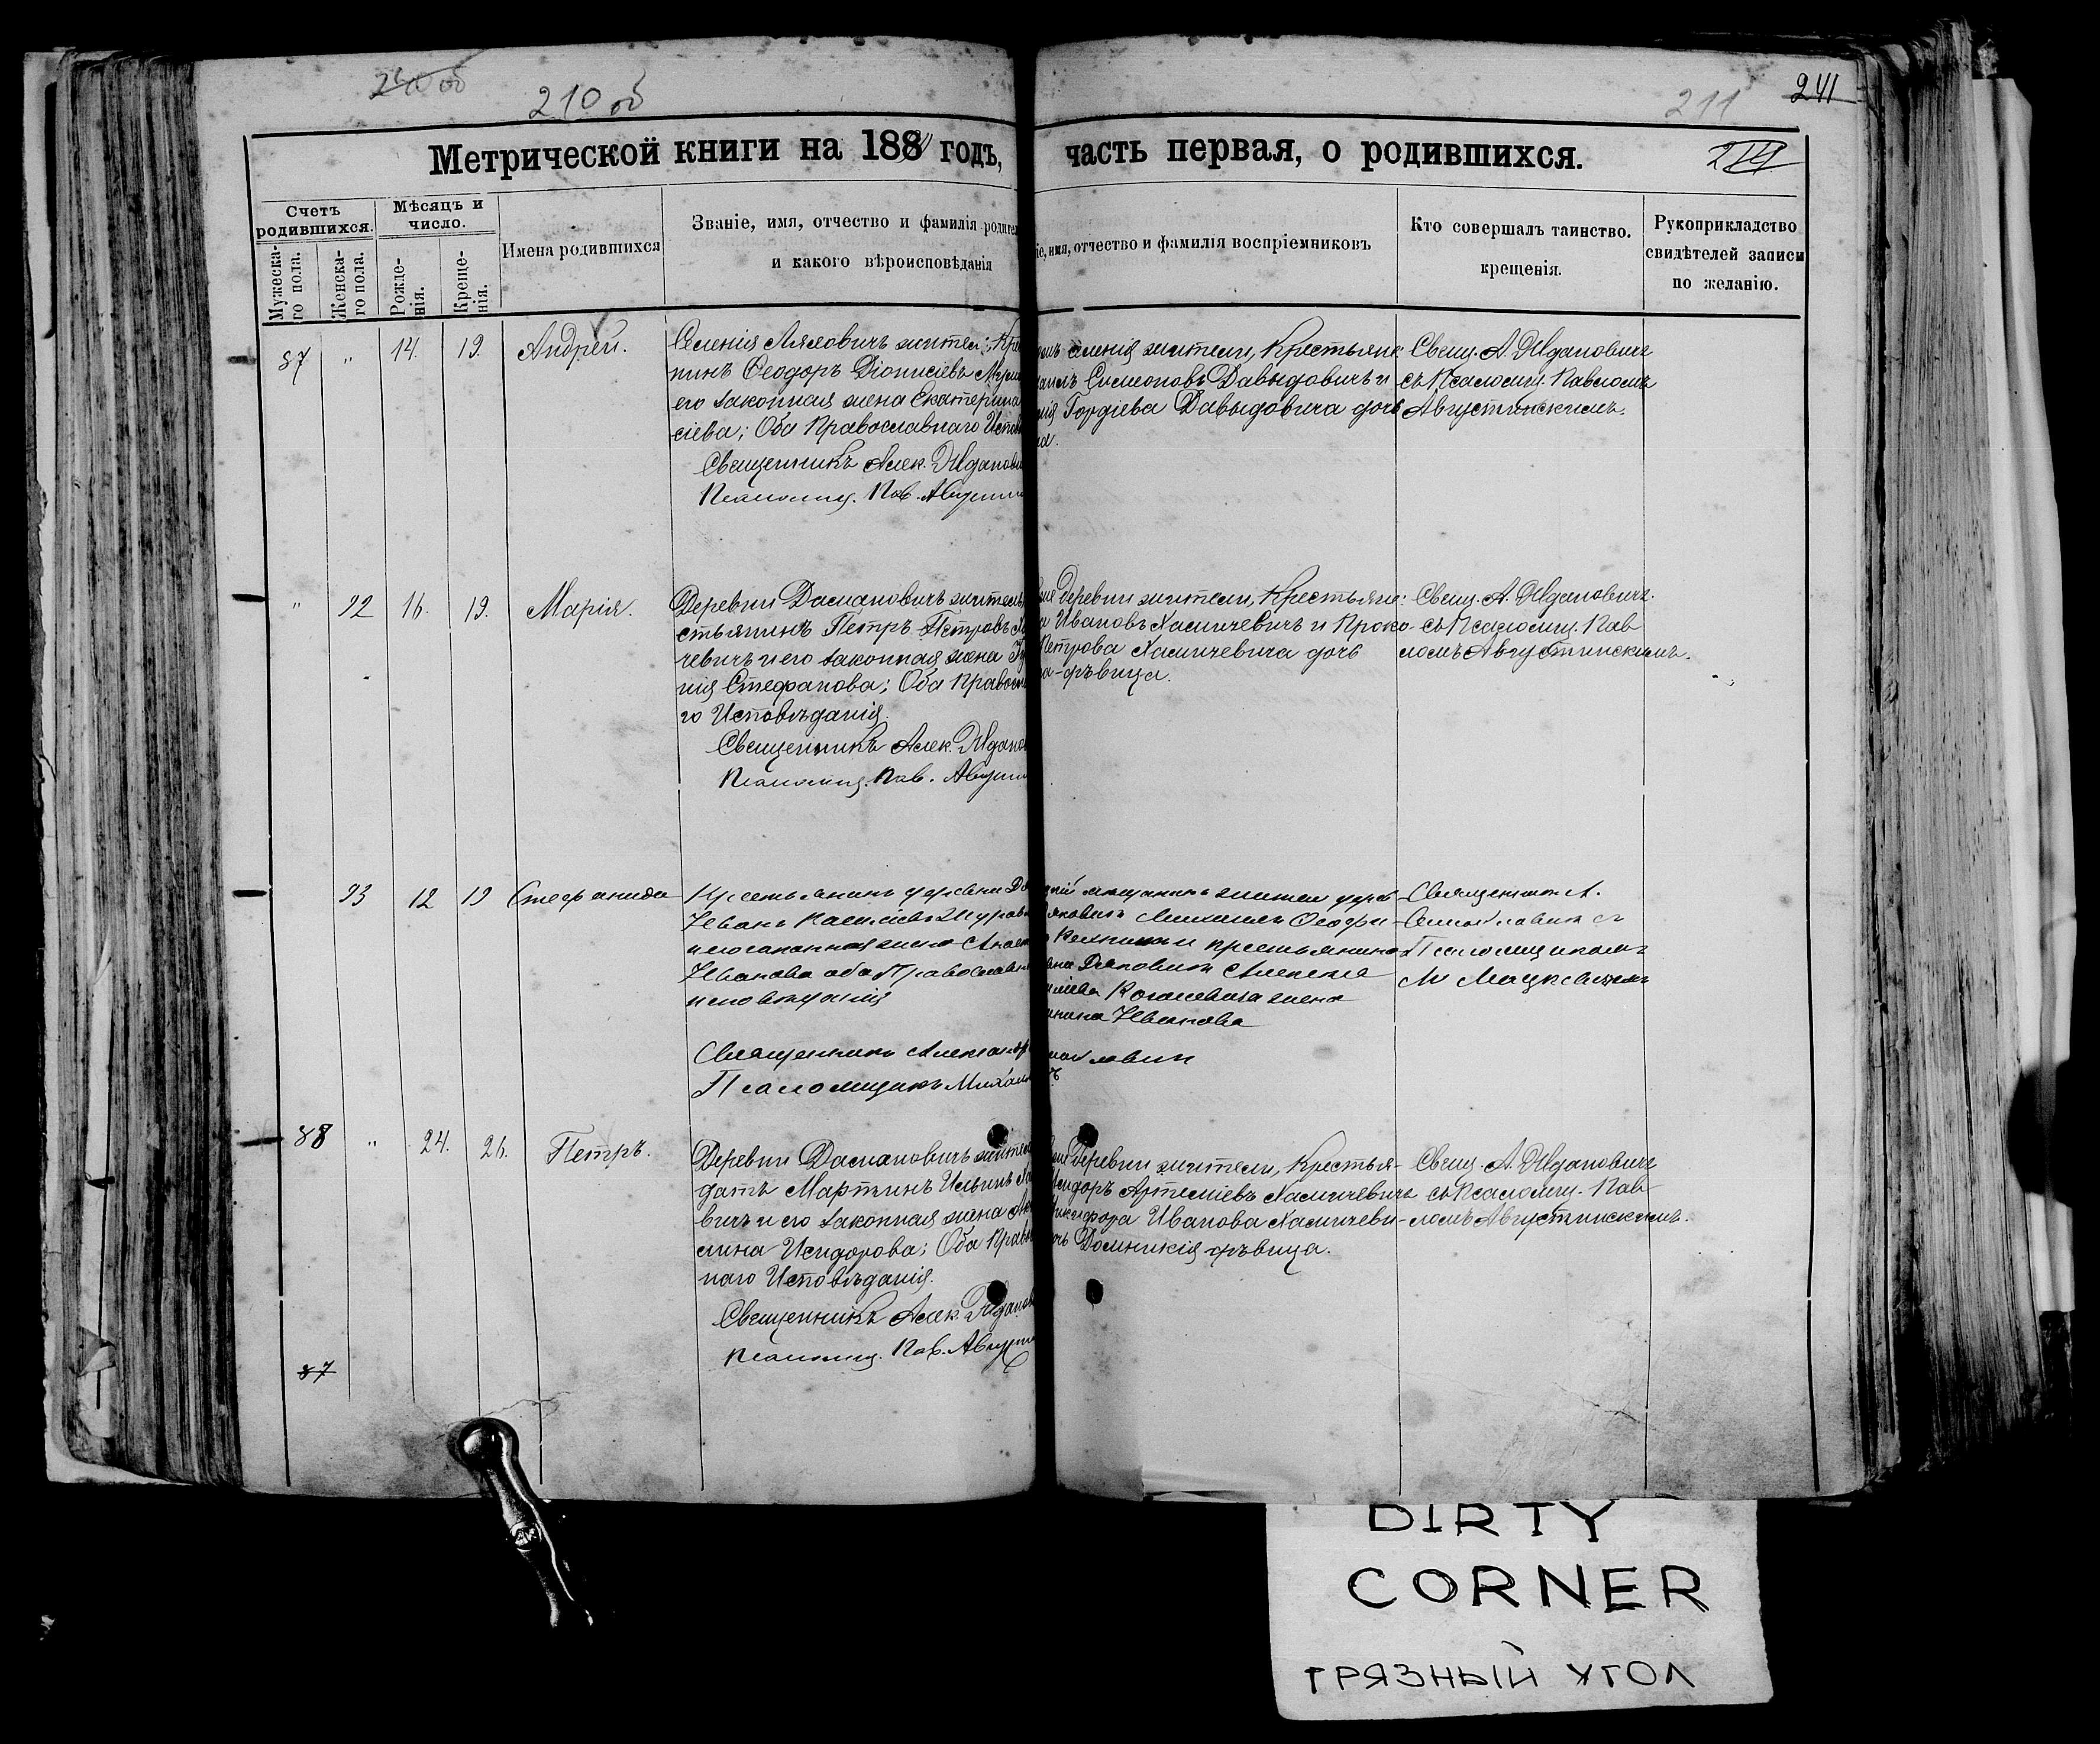 210 об
211
241
Метрической книги на 188 годъ,
часть первая, о родившихся.
Счетъ родившихся.
Мѣсяцъ и число.
Мужеска-го пола.
Женска-го пола.
Рожде-нія.
Креще-нія.
Имена родившихся
Званіе, имя, отчество и фамилія родител
и какого вѣроисповѣданія
іе, имя, отчество и фамилія воспріемниковъ
Кто совершалъ таинство.
крещенія.
Рукоприкладство
свидѣтелей записи
по желанію.
87 " 14. 19. Андрей.
Селенія Ляховичъ жители; Кре
нинъ Ѳеодоръ Діонисіевъ
его законная жена Екатерина
сіева; Оба Православнаго Испов
Священникъ Алек. Жданови
Псаломщ. Пав. Августи
селенія жители, Крестьяни:
Симеоновъ Давыдовичъ и
нія Гордіева Давыдовича дочь
на.
Свящ. А. Ждановичъ
съ Псаломщ. Павломъ
Августинскимъ.
" 92 16. 19. Марія.
Деревни Дамановичъ житель
стьянинъ Петръ Петровъ Ха
чевичъ и его законная жена
нія Стефанова; Оба Правосл
го Исповѣданія.
Священникъ Алек. Ждано
Псаломщ. Пав. Августи
деревни жители, Крестьяни:
Ивановъ Хамичевичъ и Проко-
Петрова Хамичевича дочь
а-дѣвица.
Свящ. А. Ждановичъ.
съ Псаломщ. Пав
ломъ Августинскимъ.
93 12 19 Стефанида
Крестьянинъ деревни
Иванъ
и его законная жена
Иванова оба Православн
исповѣданія
Священникъ Александр
Псаломщикъ Михаил
мѣщанинъ жители дерев
Михаилъ Ѳеофи
и крестьянина
жена
Иванова
Священникъ А.
съ
Псаломщикомъ
М
88 " 24. 26. Петръ.
Деревни Дамановичъ жител
датъ Мартинъ Ильинъ Ха
вичъ и его законная жена Ак
лина Исидорова; Оба Правос
наго Исповѣданія.
Священникъ Алек. Жданов
Псаломщ. Пав. Августи
деревни жители, Крестья-
Исидоръ Артеміевъ Хамичевичъ
Никифора Иванова Хамичеви-
очь Домникія дѣвица.
Свящ. А. Ждановичъ
съ Псаломщ. Пав
ломъ Августинскимъ.
87
DIRTY
CORNER
ГРЯЗНЫЙ УГОЛ